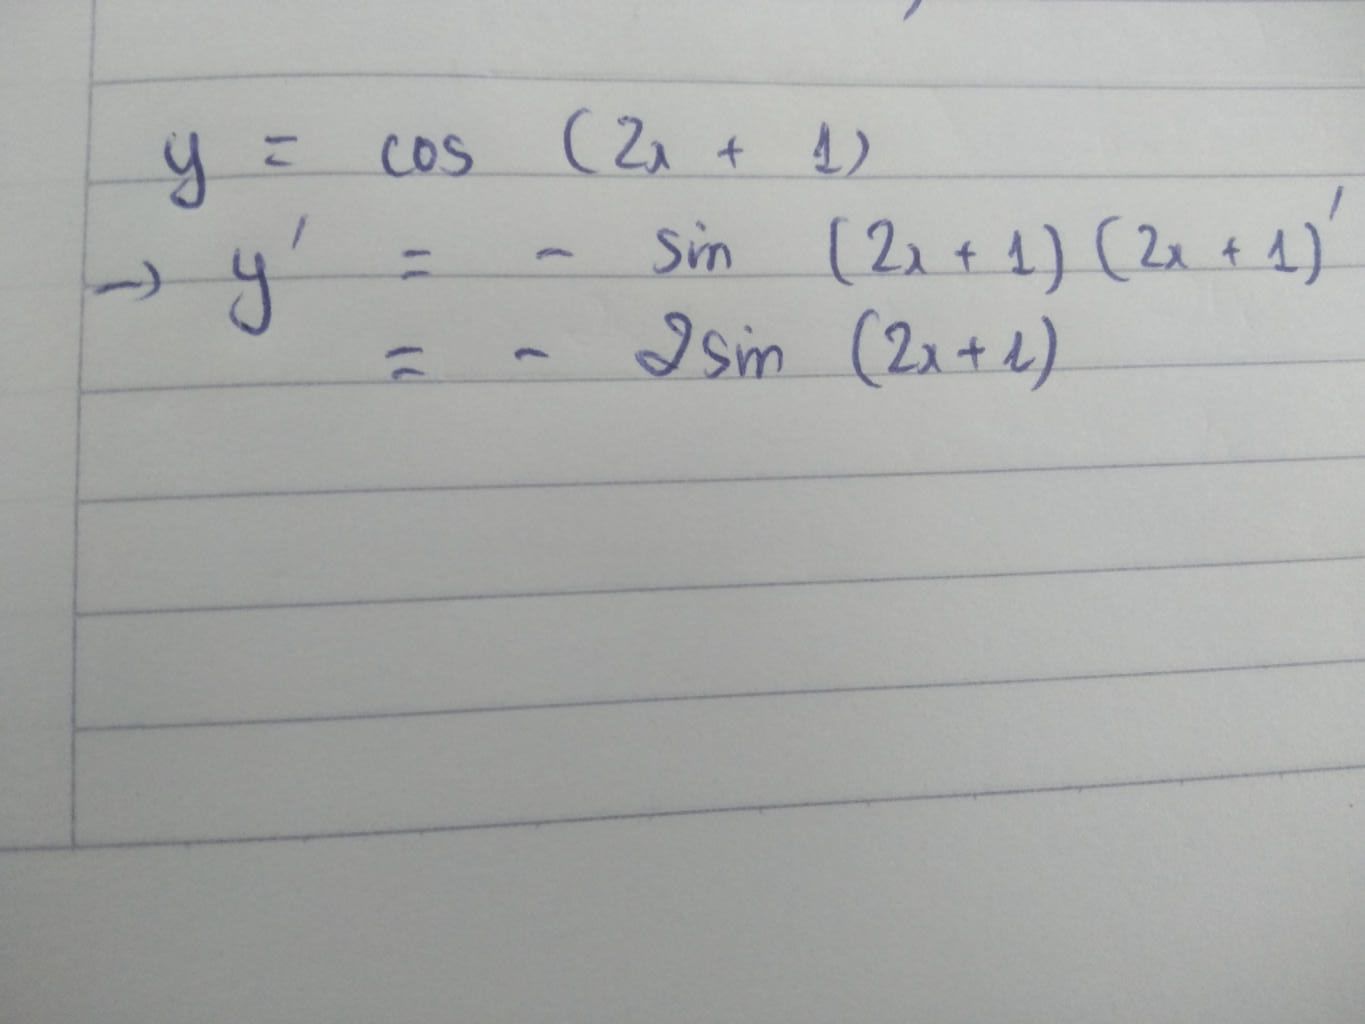 y = cos (2x + 1)
→ y' = - sin (2x + 1) (2x + 1)'
= - 2sin (2x + 1)